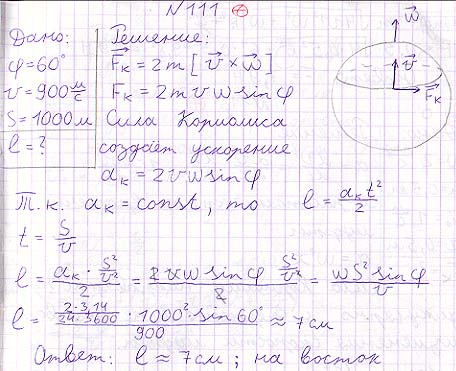 N 111 ⊕
Дано:
φ=60°
v=900 м/с
S=1000 м
l=?
Решение:
F⃗к = 2m [v⃗ × ω⃗]
Fк = 2mvω sin φ
Сила Кориолиса
создаёт ускорение
aк = 2vω sin φ
ω⃗
v⃗
F⃗к
Т.к. aк = const, то l = aкt²/2
t = S/v
l = (aк · S²/v²)/2 = (2vω sin φ S²/v²)/2 = ωS² sin φ/v
l = (2·3,14/(24·3600) · 1000² · sin 60°)/900 ≈ 7 см
Ответ: l ≈ 7 см; на восток